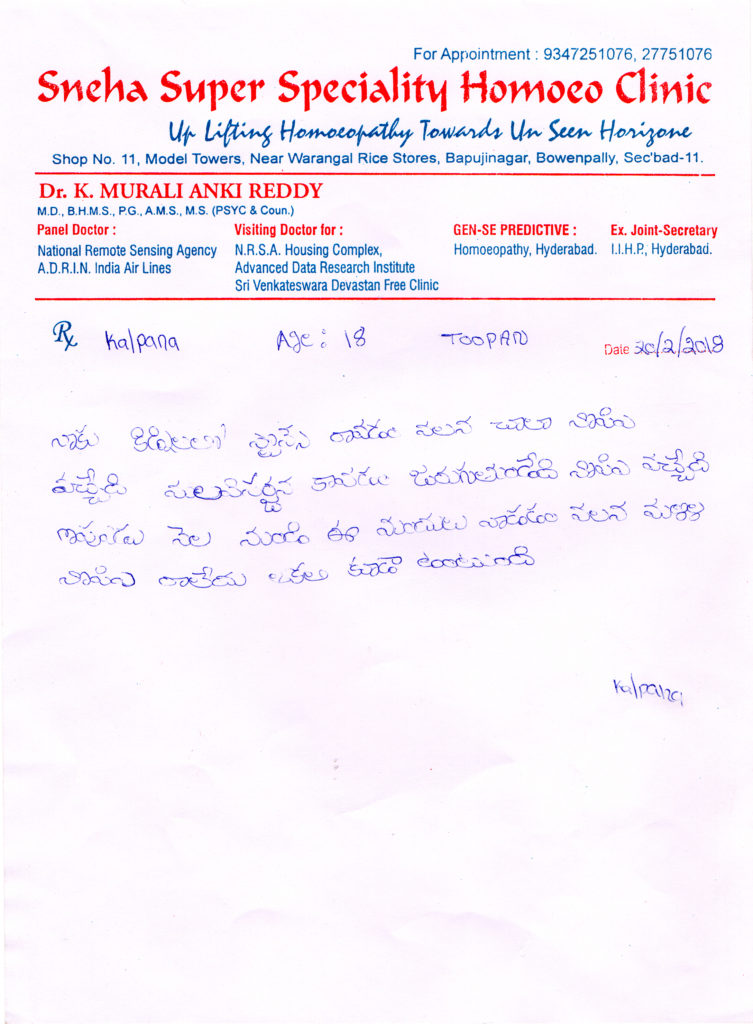 For Appointment : 9347251076, 27751076
Sneha Super Speciality Homoeo Clinic
Up Lifting Homoeopathy Towards Un Seen Horizone
Shop No. 11, Model Towers, Near Warangal Rice Stores, Bapujinagar, Bowenpally, Sec'bad-11.
Dr. K. MURALI ANKI REDDY
M.D., B.H.M.S., P.G., A.M.S., M.S. (PSYC & Coun.)
Panel Doctor : Visiting Doctor for : GEN-SE PREDICTIVE : Ex. Joint-Secretary
National Remote Sensing Agency N.R.S.A. Housing Complex, Homoeopathy, Hyderabad. I.I.H.P., Hyderabad.
A.D.R.I.N. India Air Lines Advanced Data Research Institute
Sri Venkateswara Devastan Free Clinic
Rx Kalpana Age : 18 TOOPAN Date 20/2/2018
నాకు కిడ్నిలలో స్టోన్స్ రావడం వలన చాలా నొప్పి
వచ్చేది మలవిసర్జన కావడం జరుగుతుండేది నొప్పి వచ్చేది
ఇప్పుడు నెల నుండి ఈ మందులు వాడడం వలన మళ్లి
నొప్పి రాలేదు ఆకలి కూడా ఉంటుంది
Kalpana